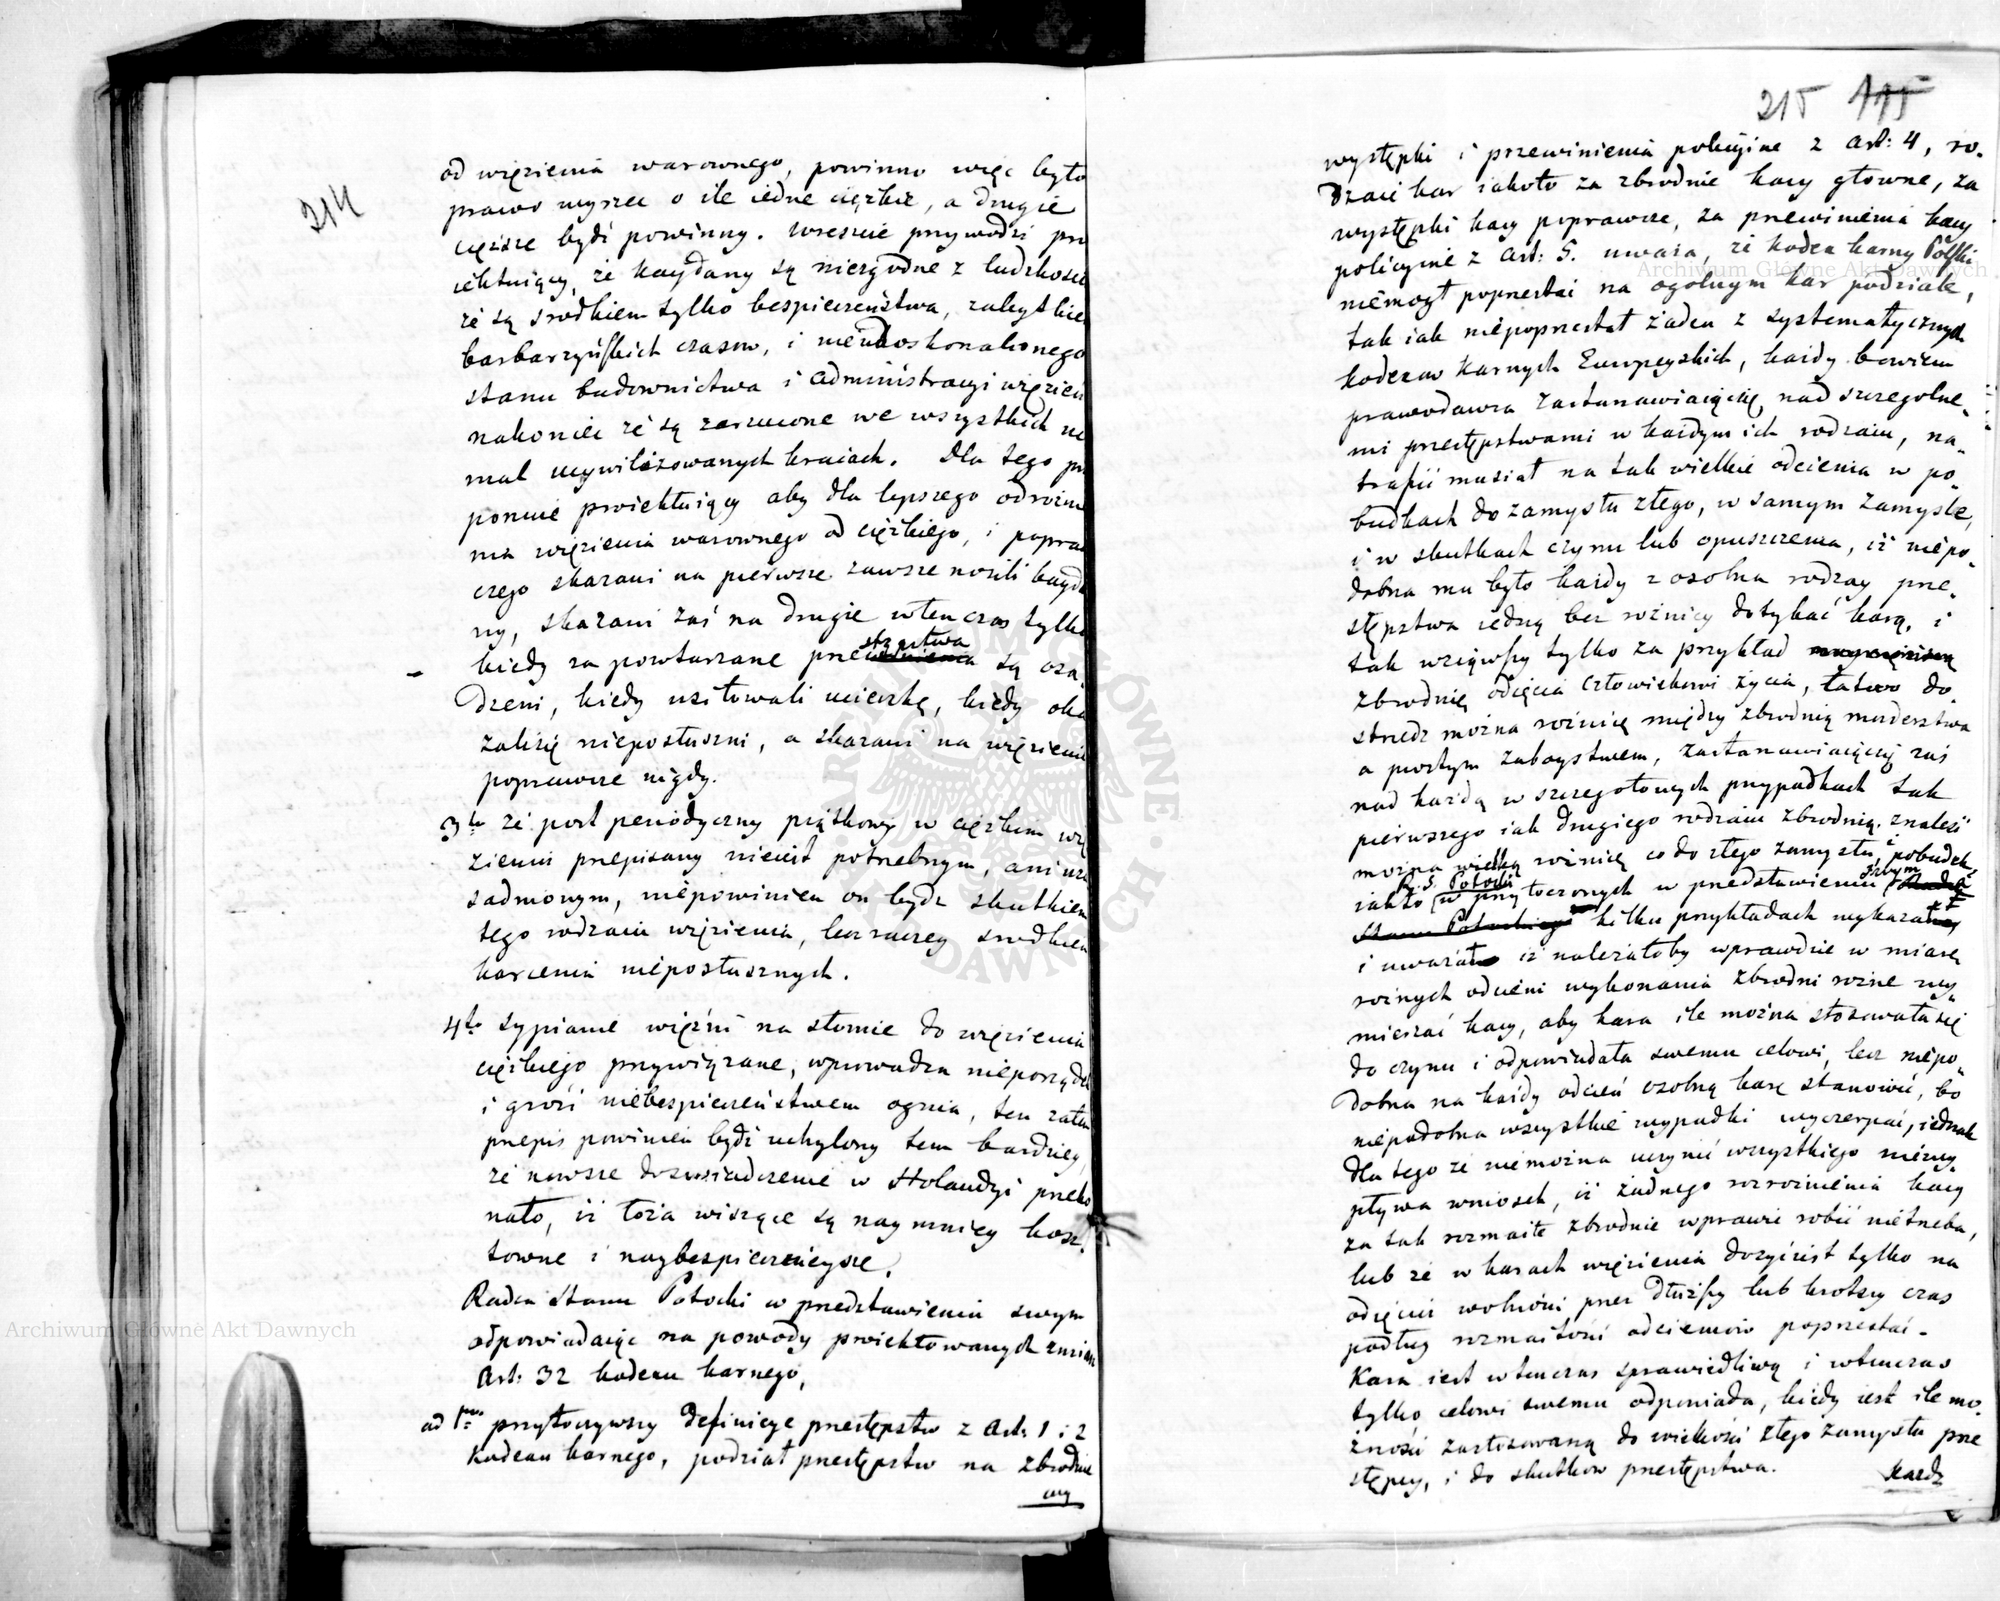 214
od więzienia warownego, powinno więc było
prawo wyrzec o ile iedne cięzkie, a drugie
cięższe bydź powinny. Wreszcie przywodzi pro
iektuiący, że kaydany są niezgodne z ludzkości
że są srodkiem tylko bespieczeństwa, zabytkiem
barbarzyńskich czasow, i nieudoskonalonego
stanu budownictwa i administracyi więzień
nakoniec że są zarzucone we wszystkich nie
mal ucywilizowanych kraiach. Dla tego pro
ponuie proiektuiący aby dla lepszego odróżnie
nia więzienia warownego od cięzkiego, i popraw
czego skazani na pierwsze zawsze nosili kayda
ny, skazani zaś na drugie wtenczas tylko
kiedy za powtarzane przestępstwa są osa„
dzeni, kiedy usiłowali ucieczkę, kiedy oka
zalisię nieposłuszni, a skazani na więzienie
poprawcze nigdy.
3tio że post periodyczny piątkowy w cięzkim wię
zieniu przepisany nieiest potrzebnym, ani uza
sadnionym, niepowinien on bydz skutkiem
tego rodzaiu więzienia, lecz raczey srodkiem
karcenia nieposłusznych.
4to sypianie więźni na słomie do więzienia
cięzkiego przywiązane, wprowadza nieporządek
i grozi niebezpieczeństwem ognia, ten zatem
przepis powinien bydź uchylony tem bardziey,
że nowsze doswiadczenie w Holandyi przeko
nało, iż łoża wiszące są naymniey kosz„
towne i naybespiecznieysze.
Radca Stanu Potocki w przedstawieniu swym
odpowiadaiąc na powody proiektowanych zmian
Art: 32 kodexu karnego,
ad 1mum przytoczywszy definicye przestępstw z Art: 1 i 2
Kodexu karnego, podział przestępstw na zbrodnie
wy
215 115
występki i przewinienia policyine z art: 4, ro„
dzaie kar iakoto za zbrodnie kary głowne, za
występki kary poprawcze, za przewinienia kary
policyine z Art: 5. uwaza, że kodex karny Polski
niemogł poprzestać na ogolnym kar podziale,
tak iak niepoprzestał żaden z systematycznych
kodexow karnych Europeyskich, każdy bowiem
prawodawca zastanawiaiącsię nad szczegolne„
mi przestępstwami w każdym ich rodzaiu, na„
trafić musiał na tak wielkie odcienia w po„
budkach do zamysłu złego, w samym zamysle,
i w skutkach czynu lub opuszczenia, iż niepo„
dobna mu było każdy z osobna rodzay prze„
stępstwa iedną bez rożnicy dotykać karą, i
tak wziąwszy tylko za przykład
zbrodnię odięcia człowiekowi życia, łatwo do„
strzedz można rożnicę między zbrodnią morderstwa
a prostym zaboystwem, zastanawiaiącsię zaś
nad każdą w szczegołowych przypadkach tak
pierwszego iak drugiego rodzaiu zbrodnią, znaleść
można wielką rożnicę co do złego zamysłu, i pobudek
iakto R. S. Potocki w przytoczonych w przedstawieniu swym
Stanu Potockiego kilku przykładach wykazał
i uważał iż należałoby wprawdzie w miarę
rożnych odcieni wykonania zbrodni rożne wy„
mierzać kary, aby kara ile można stosowałasię
do czynu i odpowiadała swemu celowi, lecz niepo„
dobna na każdy odcień osobną karę stanowić, bo
niepodobna wszystkie wypadki wyczerpać, iednak
dla tego że niemożna uczynić wszystkiego niewy„
pływa wniosek, iż żadnego rozrożnienia kary
za tak rozmaite zbrodnie wprawie robić nietrzeba,
lub że w karach więzienia dosyć iest tylko na
odięciu wolności przez dłuższy lub krotszy czas
podług rozmaitości odcieniow poprzestać.
Kara iest wtenczas sprawiedliwą i wtenczas
tylko celowi swemu odpowiada, kiedy iest ile mo„
żności zastosowaną do wielkości złego zamysłu prze
stępcy, i do skutkow przestępstwa.
Każdz